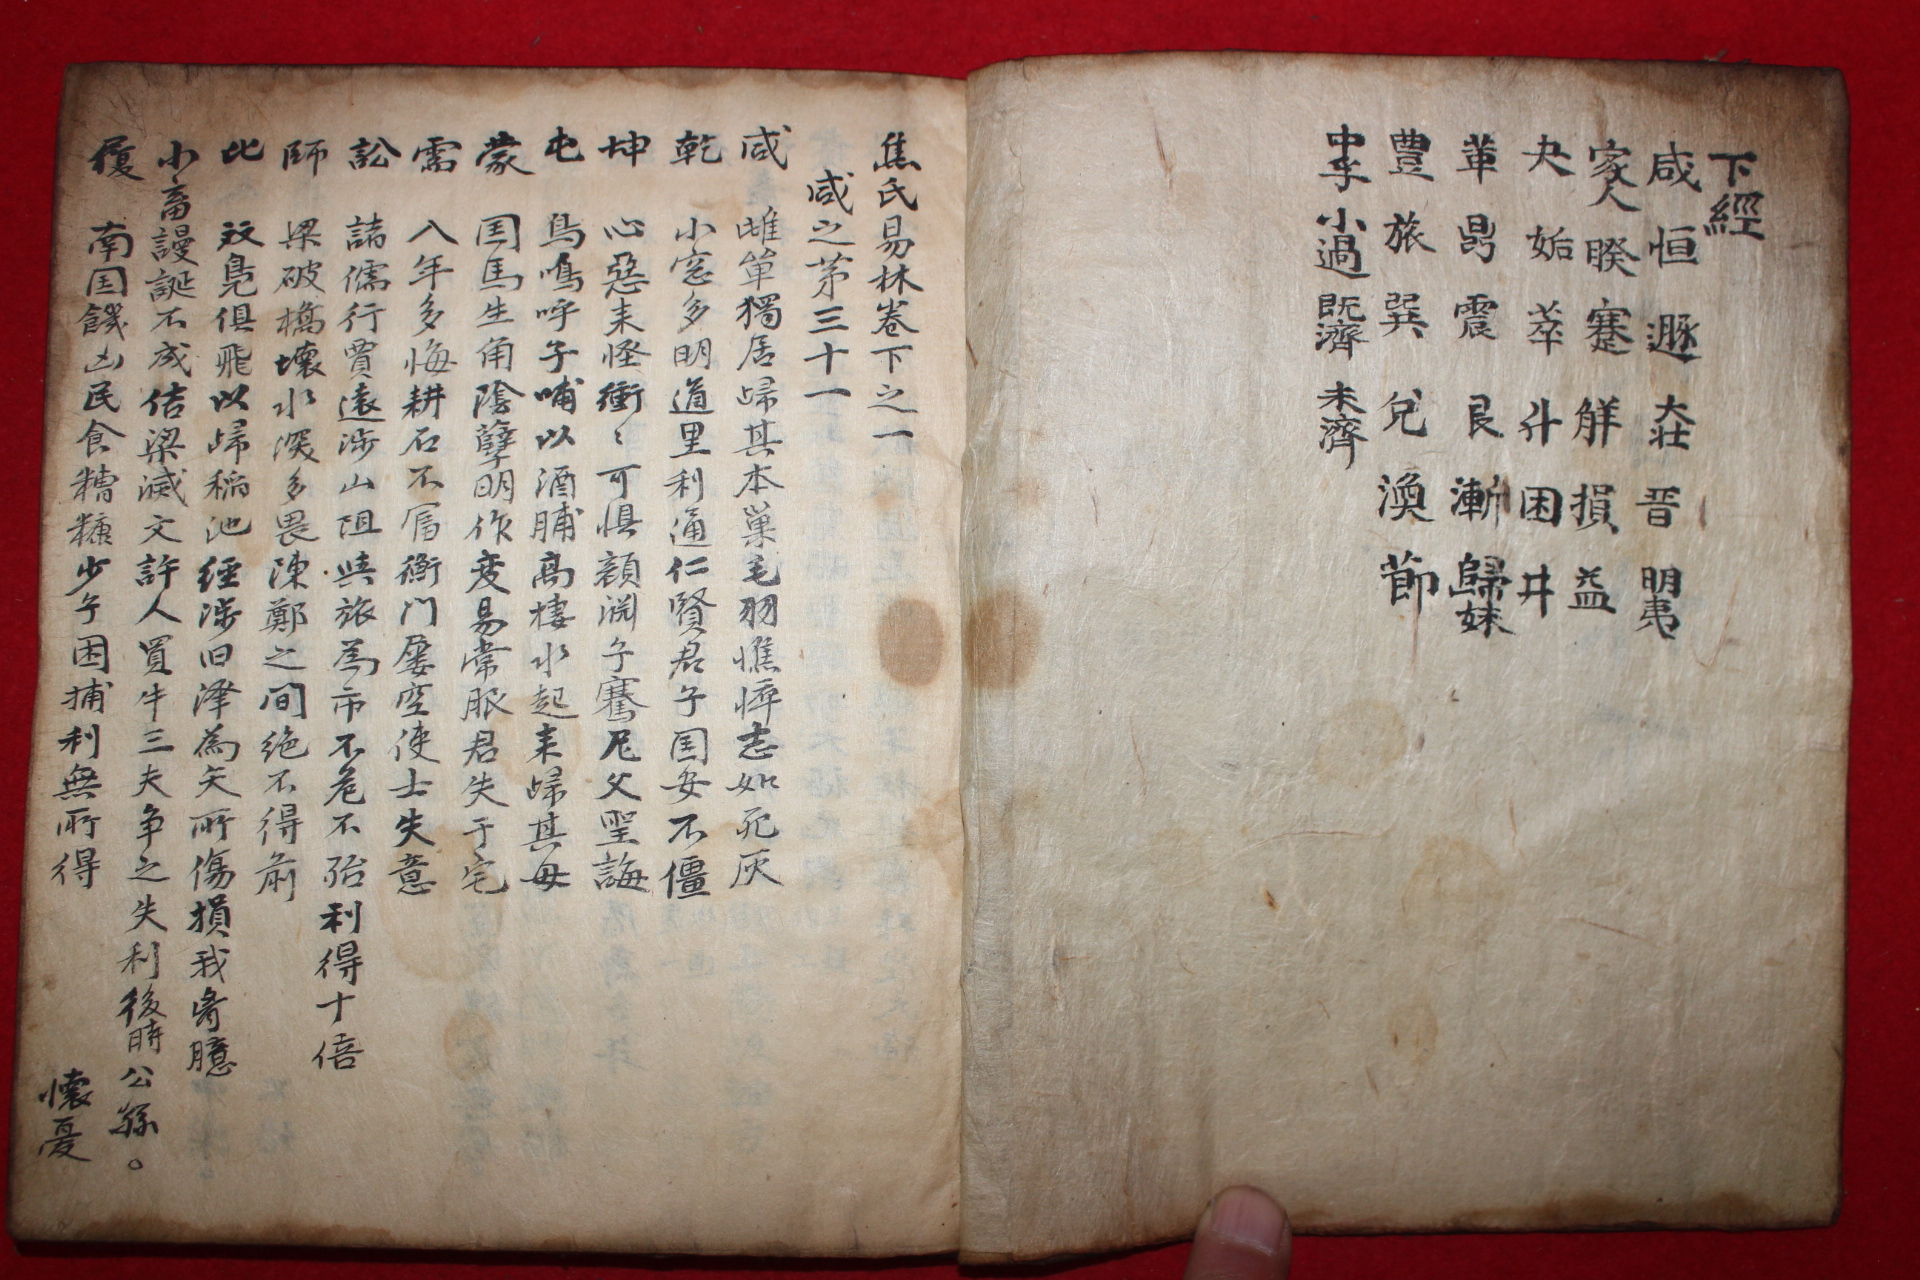 下經
咸 恒 遯 大壯 晋 明夷
家人 睽 蹇 解 損 益
夬 姤 萃 升 困 井
革 鼎 震 艮 漸 歸妹
豊 旅 巽 兌 渙 節
中孚 小過 既濟 未濟
焦氏易林卷下之一
咸之第三十一
咸 雌單獨居歸其本巢毛羽憔悴志如死灰
乾 小窓多明道里利通仁賢君子国安不僵
坤 心惡来怪衝〻可惧顔淵子騫尼父聖誨
屯 鳥鳴呼子哺以酒脯高棲水起来歸其母
蒙 国馬生角陰孽明作变易常服君失于宅
需 八年多悔耕石不富衡门屡空使士失意
訟 諸儒行賈遠涉山阻與旅為市不危不殆利得十倍
師 梁破橋壊水深多畏陳鄭之间绝不得前
比 双鳬俱飛以歸稲池経涉旧澤為矢所傷損我胷臆
小畜 謾誕不成倍梁滅文許人買牛三夫争之失利後時公孫。懷憂
履 南国饑凶民食糟糠少子困捕利無所得